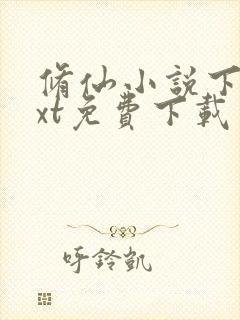 脩仙小説下
xt免費下載
呼鈴凱